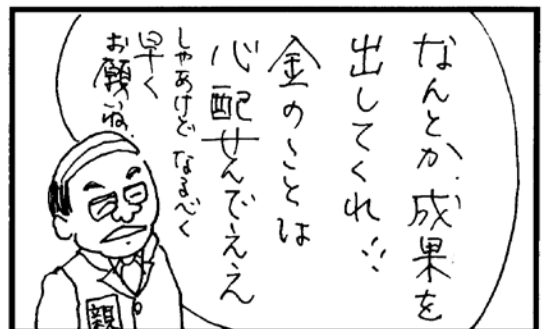 なんとか、成果を
出してくれ!!
金のことは
心配せんでええ
しゃあけど なるべく
早く
お願いね。
親